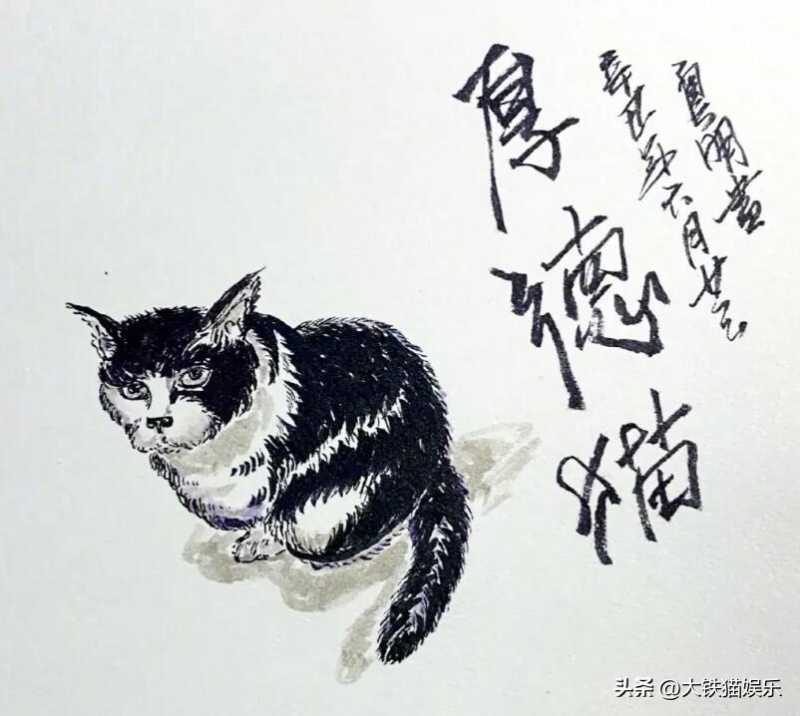 厚德猫
辛丑年六月廿
明畫
头条 @大铁猫娱乐